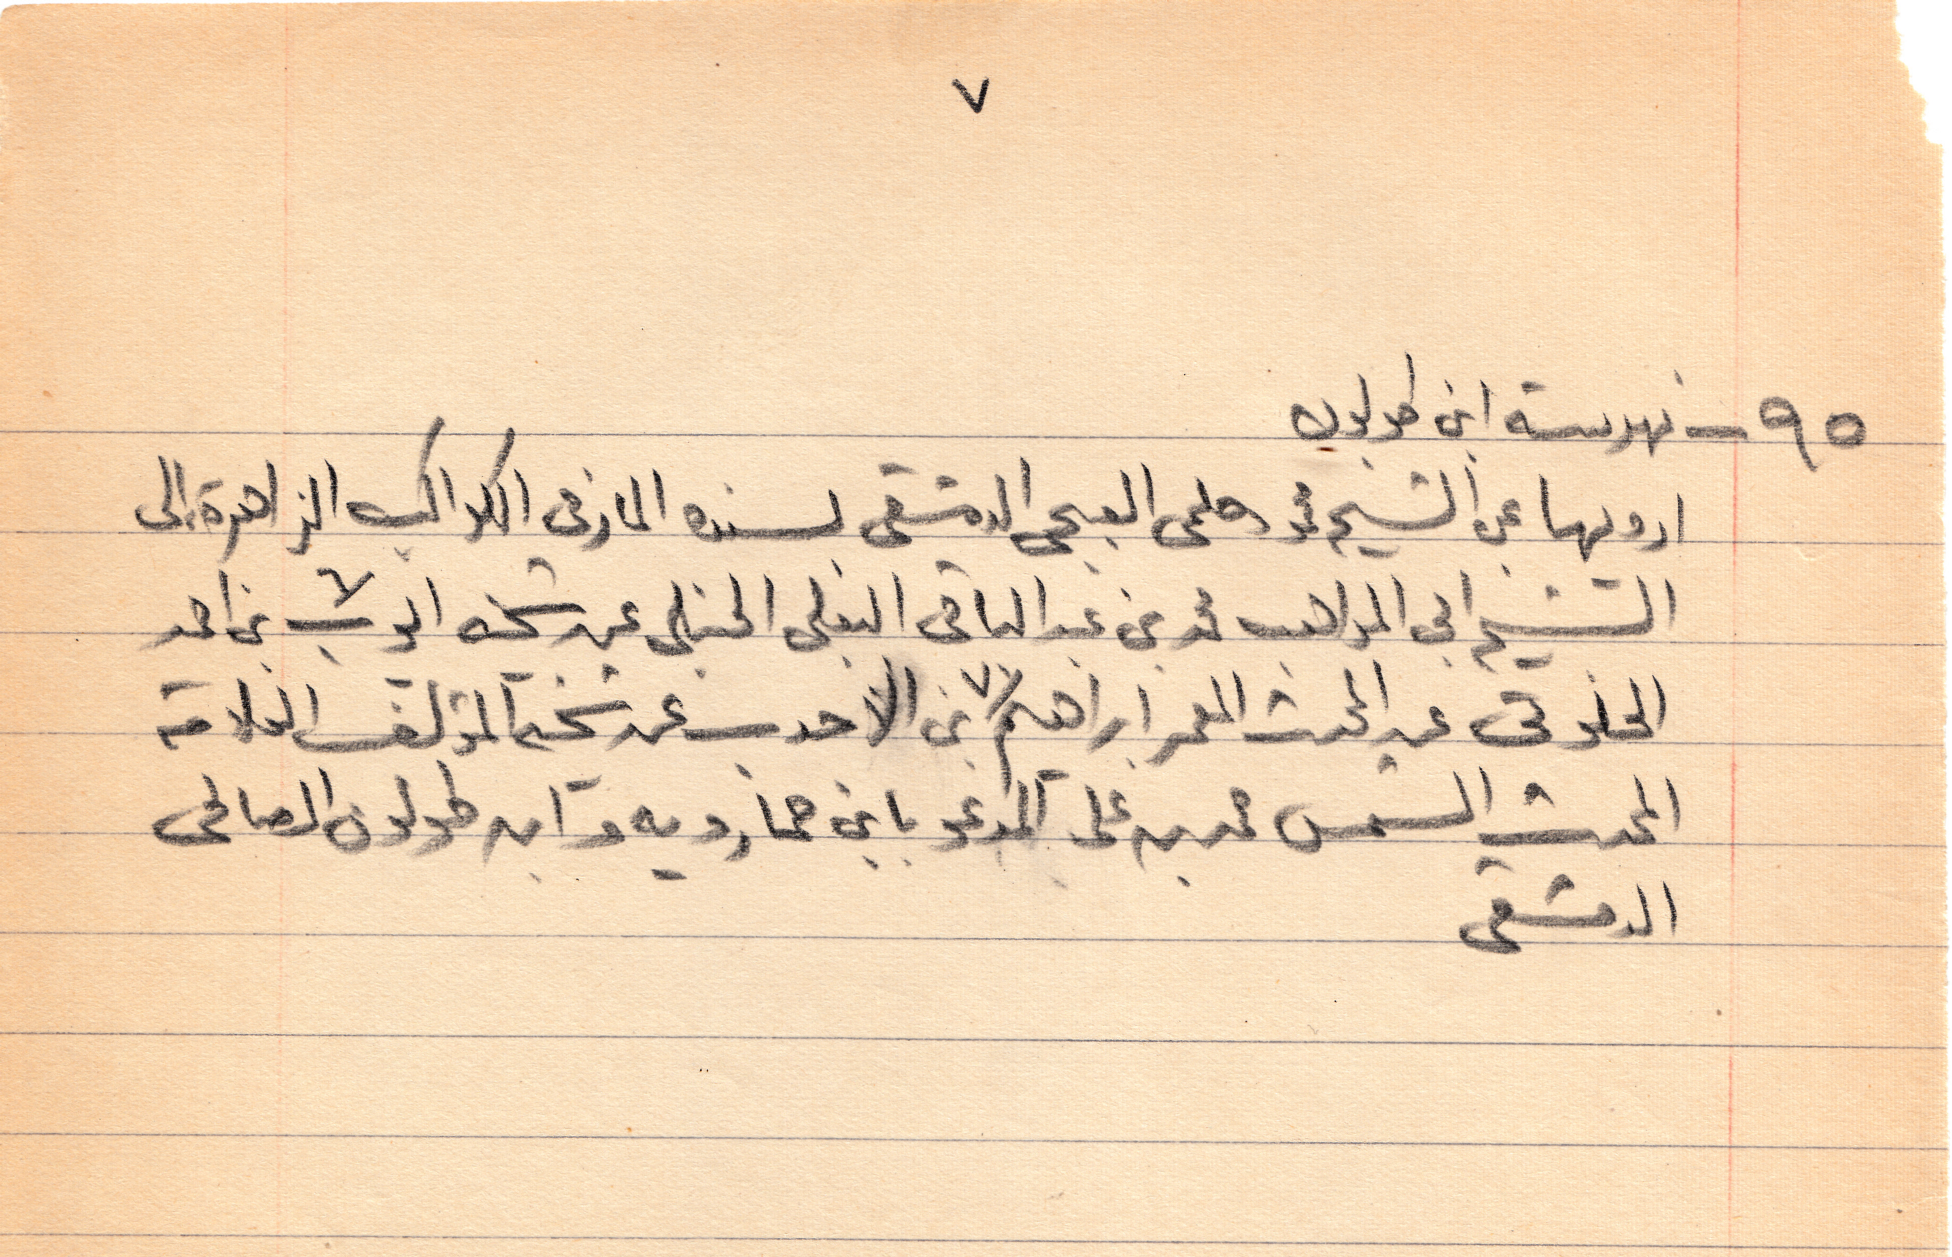 ٧
٩٥ – فهرسة ابن طولون
ارويها عن الشيخ محمد حلمي الدمشقي بسنده المار في الكواكب الزاهرة إلى
الشيخ ابي المواهب محمد بن عبد الباقي البعلي الحنبلي عن شيخه ايوب بن احمد
الخلوتي عن المحدث المعمر ابراهيم بن الاحدب عن شيخه المؤلف العلامة
المحدث الشمس محمد بن علي المدعو بابن خمارويه وابن طولون الصالحي
الدمشقي